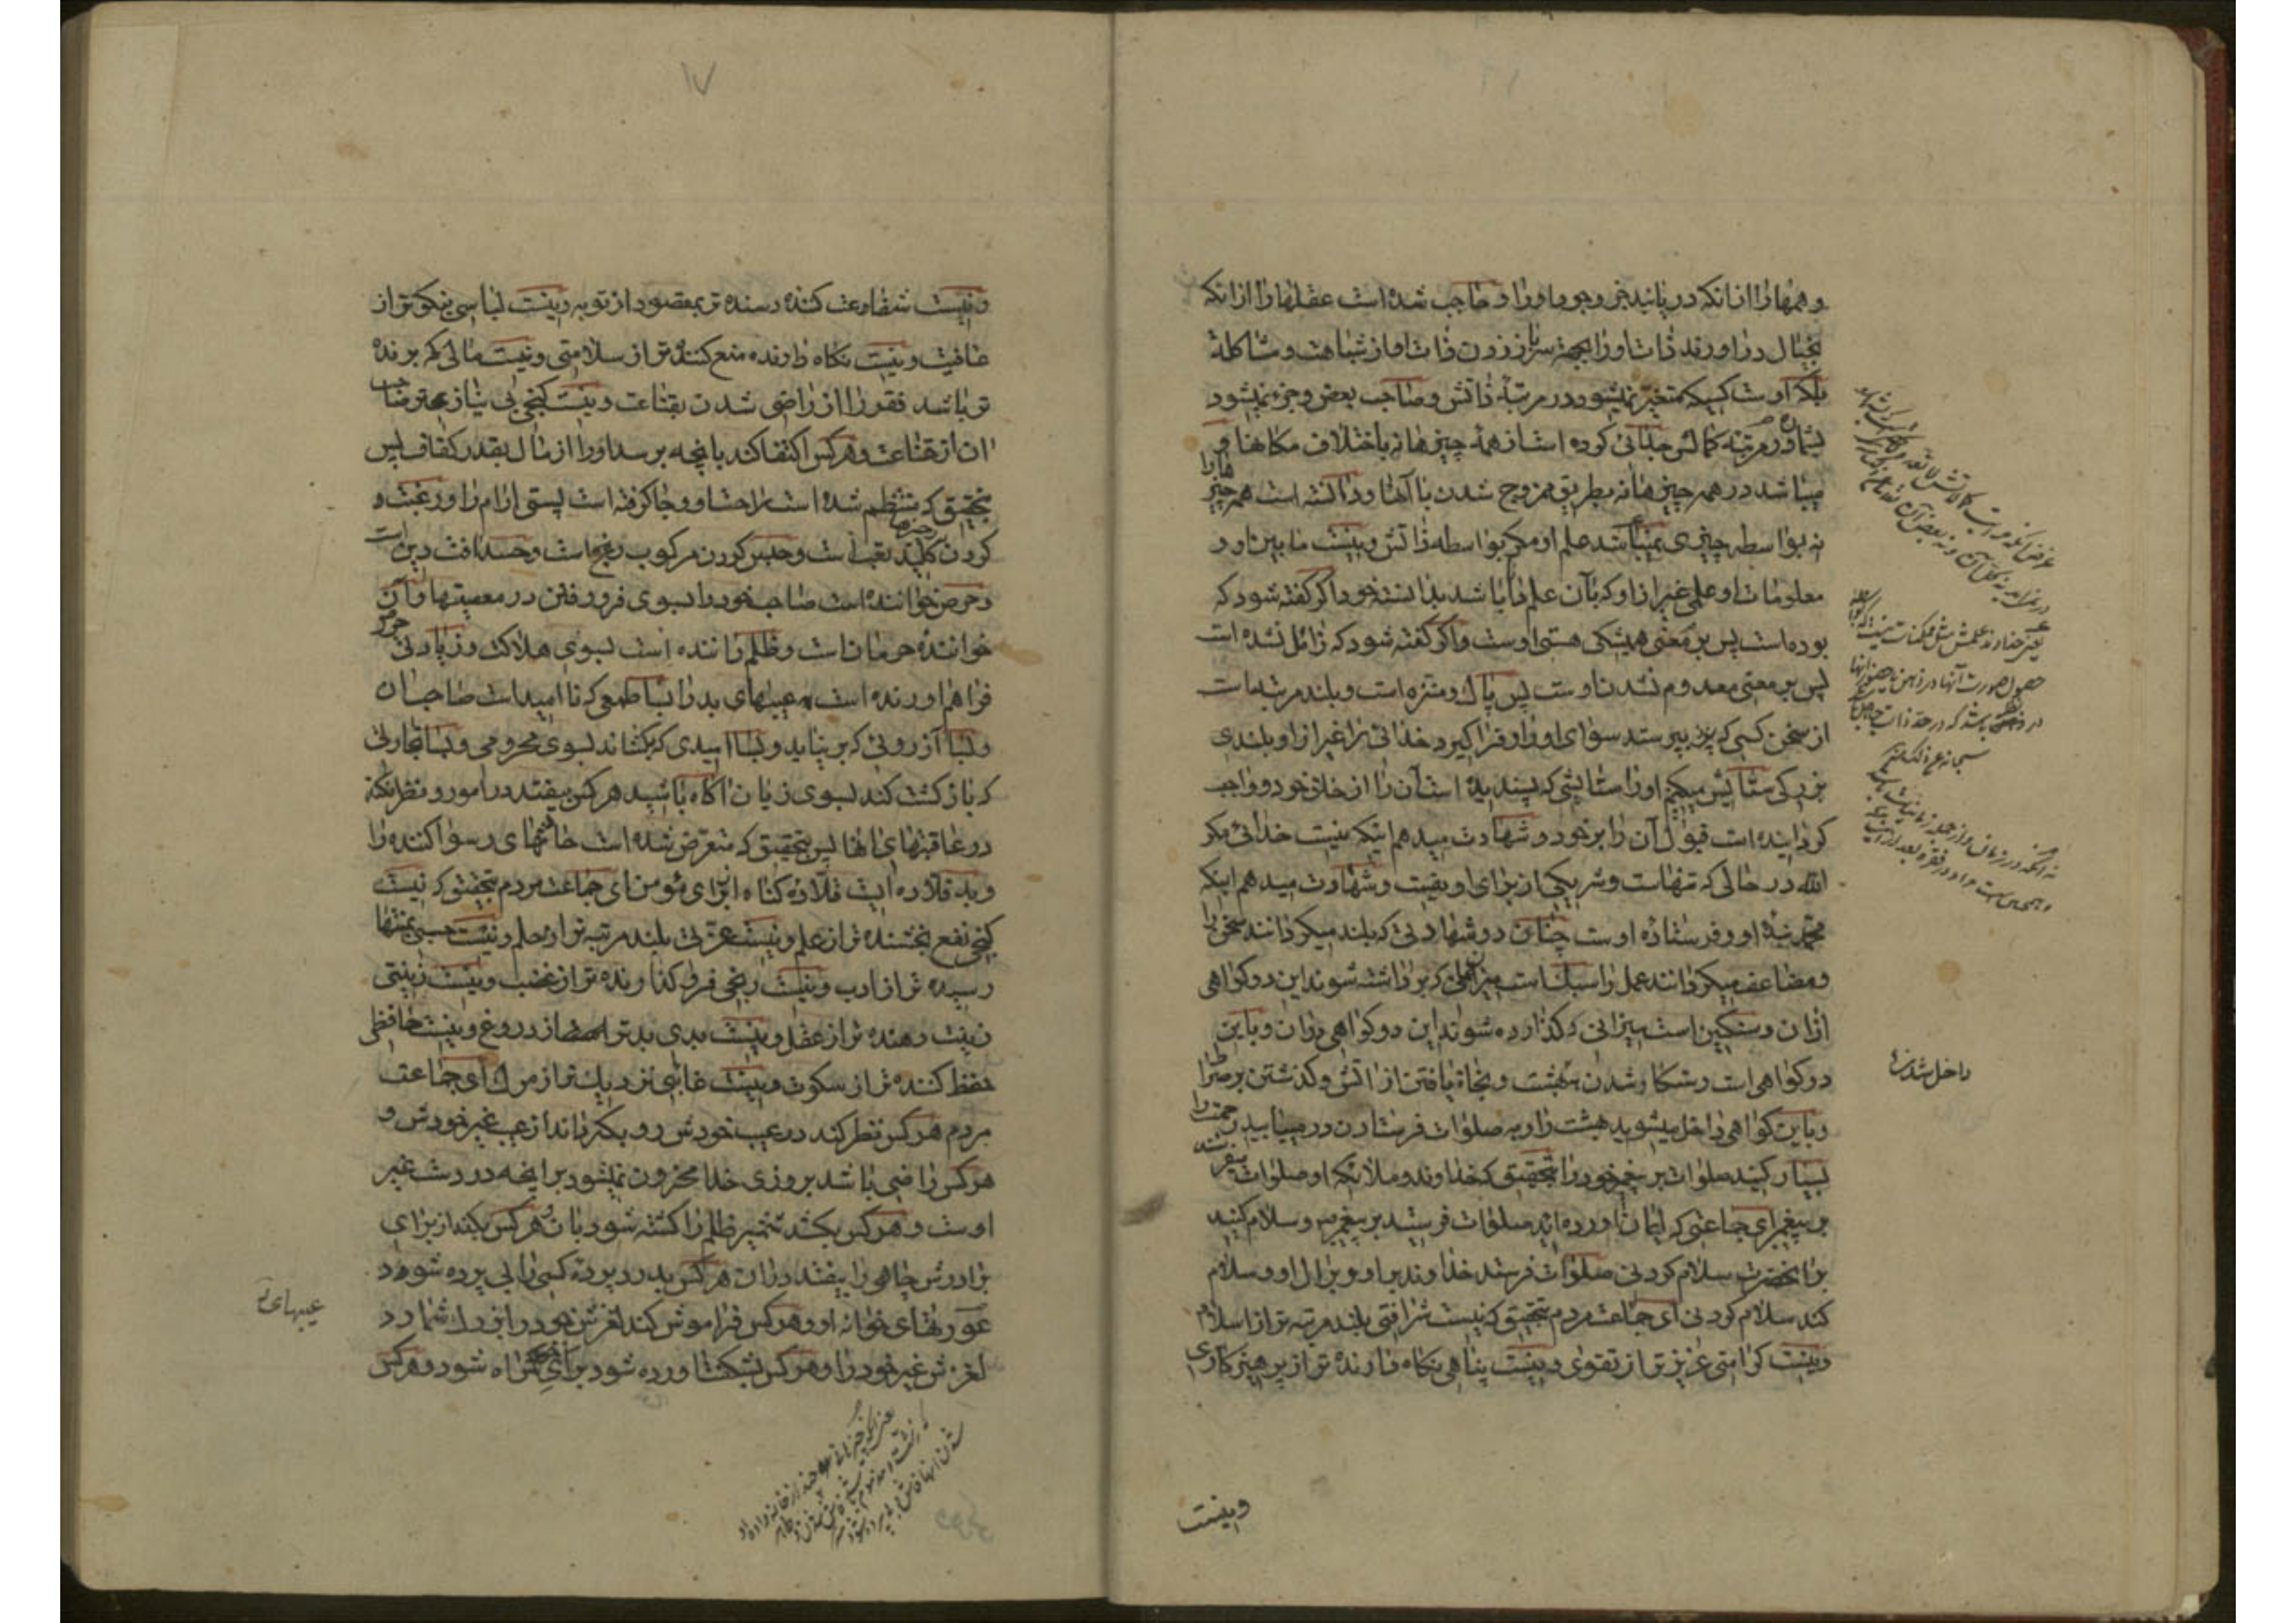 وهمها را از انکه دریابند جز وجود او را و حاجب شده است عقلها را از انکه
بخیال دراورند ذات او را بجهة سرباز زدن ذات او از شباهت و مشاکلة
بلکه اوست کسیکه متغیر نمیشود در مرتبهٔ ذاتش و صاحب بعض و جزء نمیشود
بشماره در مرتبه کمالش جدائی کرده است از همه چیزها نه باختلاف مکانها و
میباشد در همه چیزها نه بطریق ممزوج شدن با آنها و دانسته است همه چیزها را
نه بواسطه چیزی نمیباشد علم او مکر بواسطه ذاتش و نیست ما بین او و
معلومات او علمی غیر از او که بآن علم دانا باشد بدانسته خود اکر کفته شود که
بوده است پس بر معنی همیشکی هستی اوست و اکر کفته شود که زائل نشده است
پس بر معنی معدوم نشدن اوست پس پاک و منزه است و بلند مرتبه است
از سخن کسی که بپرستد سوای او را و فراکیرد خدائی را غیر از او بلندی
بزرکی ستایش میکنیم او را ستایشی که پسندیده است آن را از خلق خود و واجب
کردانیده است قبول آن را بر خود و شهادت میدهم اینکه نیست خدائی مکر
الله در حالی که تنهاست و شریکی از برای او نیست و شهادت میدهم اینکه
محمد بندهٔ او و فرستاده اوست چنان دو شهادتی که بلند میکردانند سخن را
و مضاعف میکردانند عمل را سبک است میزانی که برداشته شوند این دو کواهی
ازان و سنکین است میزانی که کذارده شوند این دو کواهی دران و باین
دو کواهی است رستکار شدن ببهشت و نجاة یافتن از اتش و کذشتن بر صراط
و باین کواهی داخل میشوید بهشت را و به صلوات فرستادن در مییابید رحمت را
بسیار کنید صلوات بر پیغمبر خود را بتحقیق که خداوند و ملائکه او صلوات میفرستند
بر پیغمبر ای جماعتی که ایمان اورده اید صلوات فرستید بر پیغمبر و سلام کنید
بر انحضرت سلام کردنی صلوات فرستد خداوند بر او و بر ال او و سلام
کند سلام کردنی ای جماعت مردم بتحقیق که نیست شرافتی بلند مرتبه تر از اسلام
و نیست کرامتی عزیز تر از تقوی و نیست پناهی نکاه دارنده تر از پرهیزکاری
داخل شدن
و نیست
۱۷
و نیست شفاعت کننده رسنده تر بمقصود از توبه و نیست لباسی نیکوتر از
عافیت و نیست نکاه دارنده منع کننده تر از سلامتی و نیست مالی که برنده
تر باشد فقر را از راضی شدن بقناعت و نیست کنجی بی نیاز تر صاحب
ان از قناعت و هر کس اکتفا کند بانچه برسد او را از مال بقدر کفاف پس
بتحقیق که منتظم شده است راحت او و جا کرفته است پستی ارام را و رغبت
کردن کلید تعب است و حبس کردن مرکوب رنج است و حسد افت دین است
و حرص خواننده است صاحب خود را بسوی فرو رفتن در معصیتها و آن
خواننده حرمان است و ظلم راننده است بسوی هلاکت و زیادتی
فراهم اورنده است عیبهای بد را بسا طمعی که نا امید است صاحب ان
و بسا آرزوئی که بر نیاید و بسا امیدی که بکشاند بسوی محرومی و بسا تجارتی
که بازکشت کند بسوی زیان آکاه باشید هر کس بیفتد در امور و نظر نکند
در عاقبتهای انها پس بتحقیق که متعرض شده است خاتمهای رسوا کننده را
و بد قلاده ایست قلاده کناه از برای مؤمن ای جماعت مردم بتحقیق که نیست
کنجی نفع بخشنده تر از علم و نیست عزتی بلند مرتبه تر از حلم و نیست حسبی بمنتها
رسیده تر از ادب و نیست رنجی فرو کذارنده تر از غضب و نیست زینتی
زینت دهنده تر از عقل و نیست بدی بدتر از دروغ و نیست حافظی
حفظ کننده تر از سکوت و نیست غائبی نزدیک تر از مرک ای جماعت
مردم هر کس نظر کند در عیب خودش رو بکرداند از عیب غیر خودش و
هر کس راضی باشد بروزی خدا محزون نمیشود بر انچه در دست غیر
اوست و هر کس بکشد شمشیر ظلم را کشته شود بان و هر کس بکند از برای
برادرش چاهی را بیفتد دران هر کس بدرد پرده کسی را بی پرده شود
عورتهای خانه او و هر کس فراموش کند لغزش خود را بزرک شمارد
لغزش غیر خود را و هر کس بشکفت اورده شود برای کمراه شود و هر کس
عیبهای